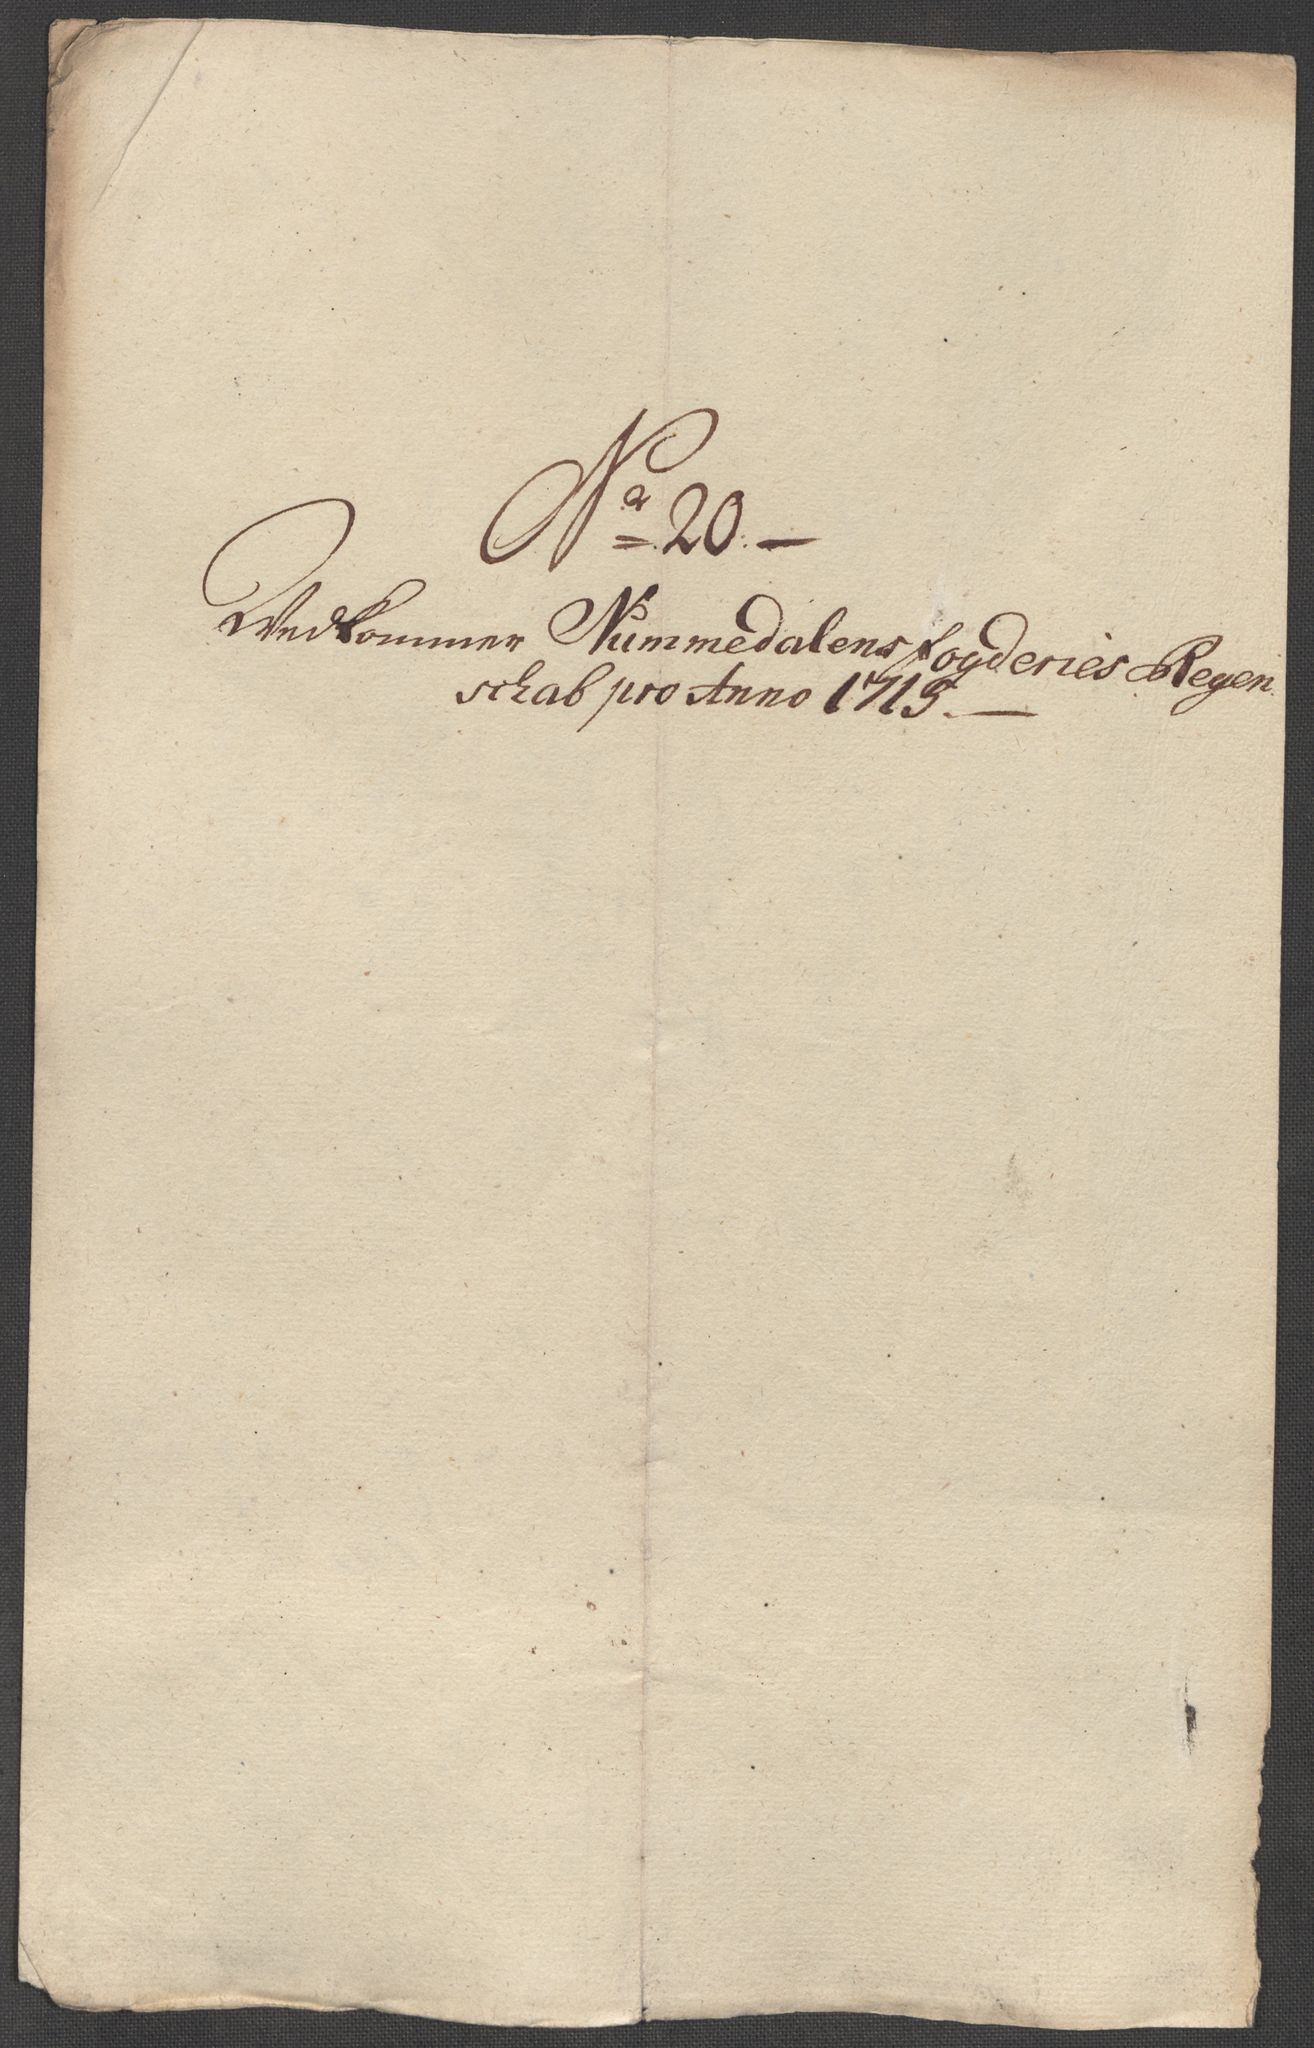 No 20. —
Vedkommer Nummedalens fogderies Regen
schab pro Anno 1715. —